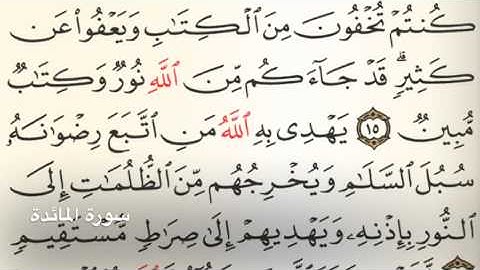 كُنتُمْ تُخْفُونَ مِنَ ٱلْكِتَـٰبِ وَيَعْفُوا۟ عَن
كَثِيرٍ ۚ قَدْ جَآءَكُم مِّنَ ٱللَّهِ نُورٌ وَكِتَـٰبٌ
مُّبِينٌ ١٥ يَهْدِى بِهِ ٱللَّهُ مَنِ ٱتَّبَعَ رِضْوَٰنَهُۥ
سُبُلَ ٱلسَّلَـٰمِ وَيُخْرِجُهُم مِّنَ ٱلظُّلُمَـٰتِ إِلَى
سورة المائدة
ٱلنُّورِ بِإِذْنِهِۦ وَيَهْدِيهِمْ إِلَىٰ صِرَٰطٍ مُّسْتَقِيمٍ